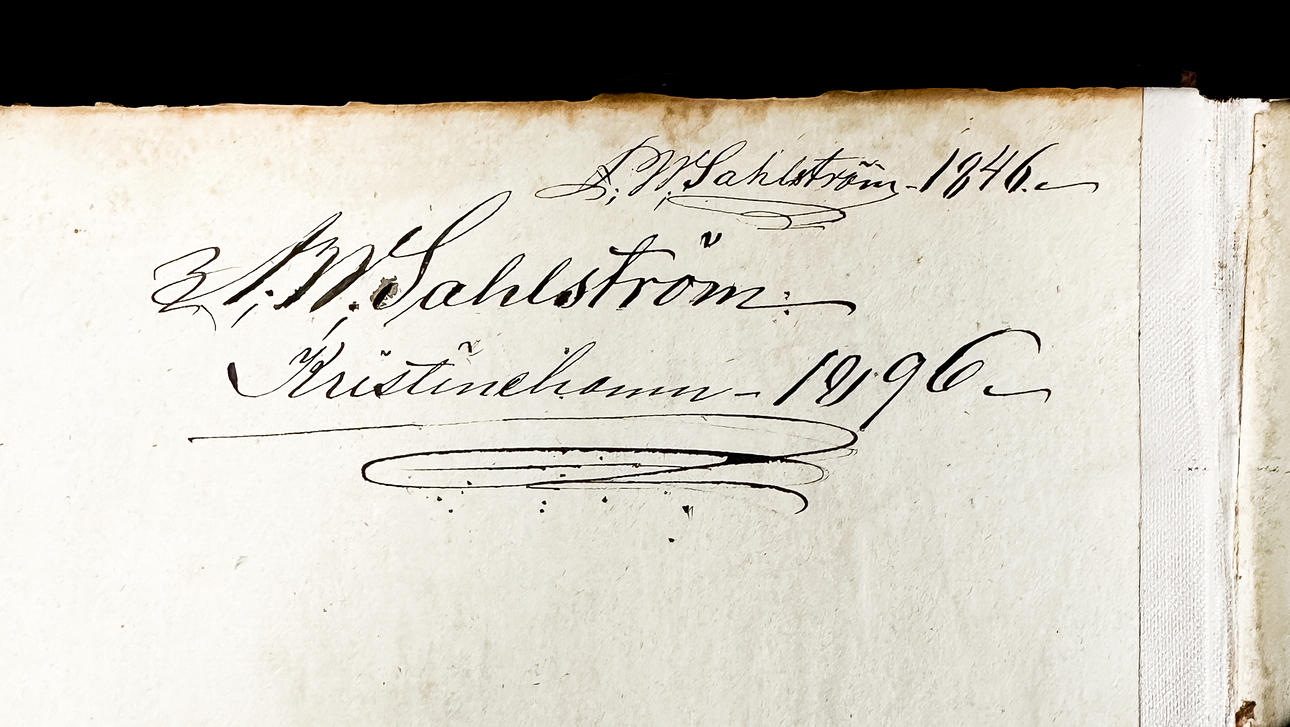 A. W. Sahlström - 1846.
A. W. Sahlström.
Kristinehamn - 1896.